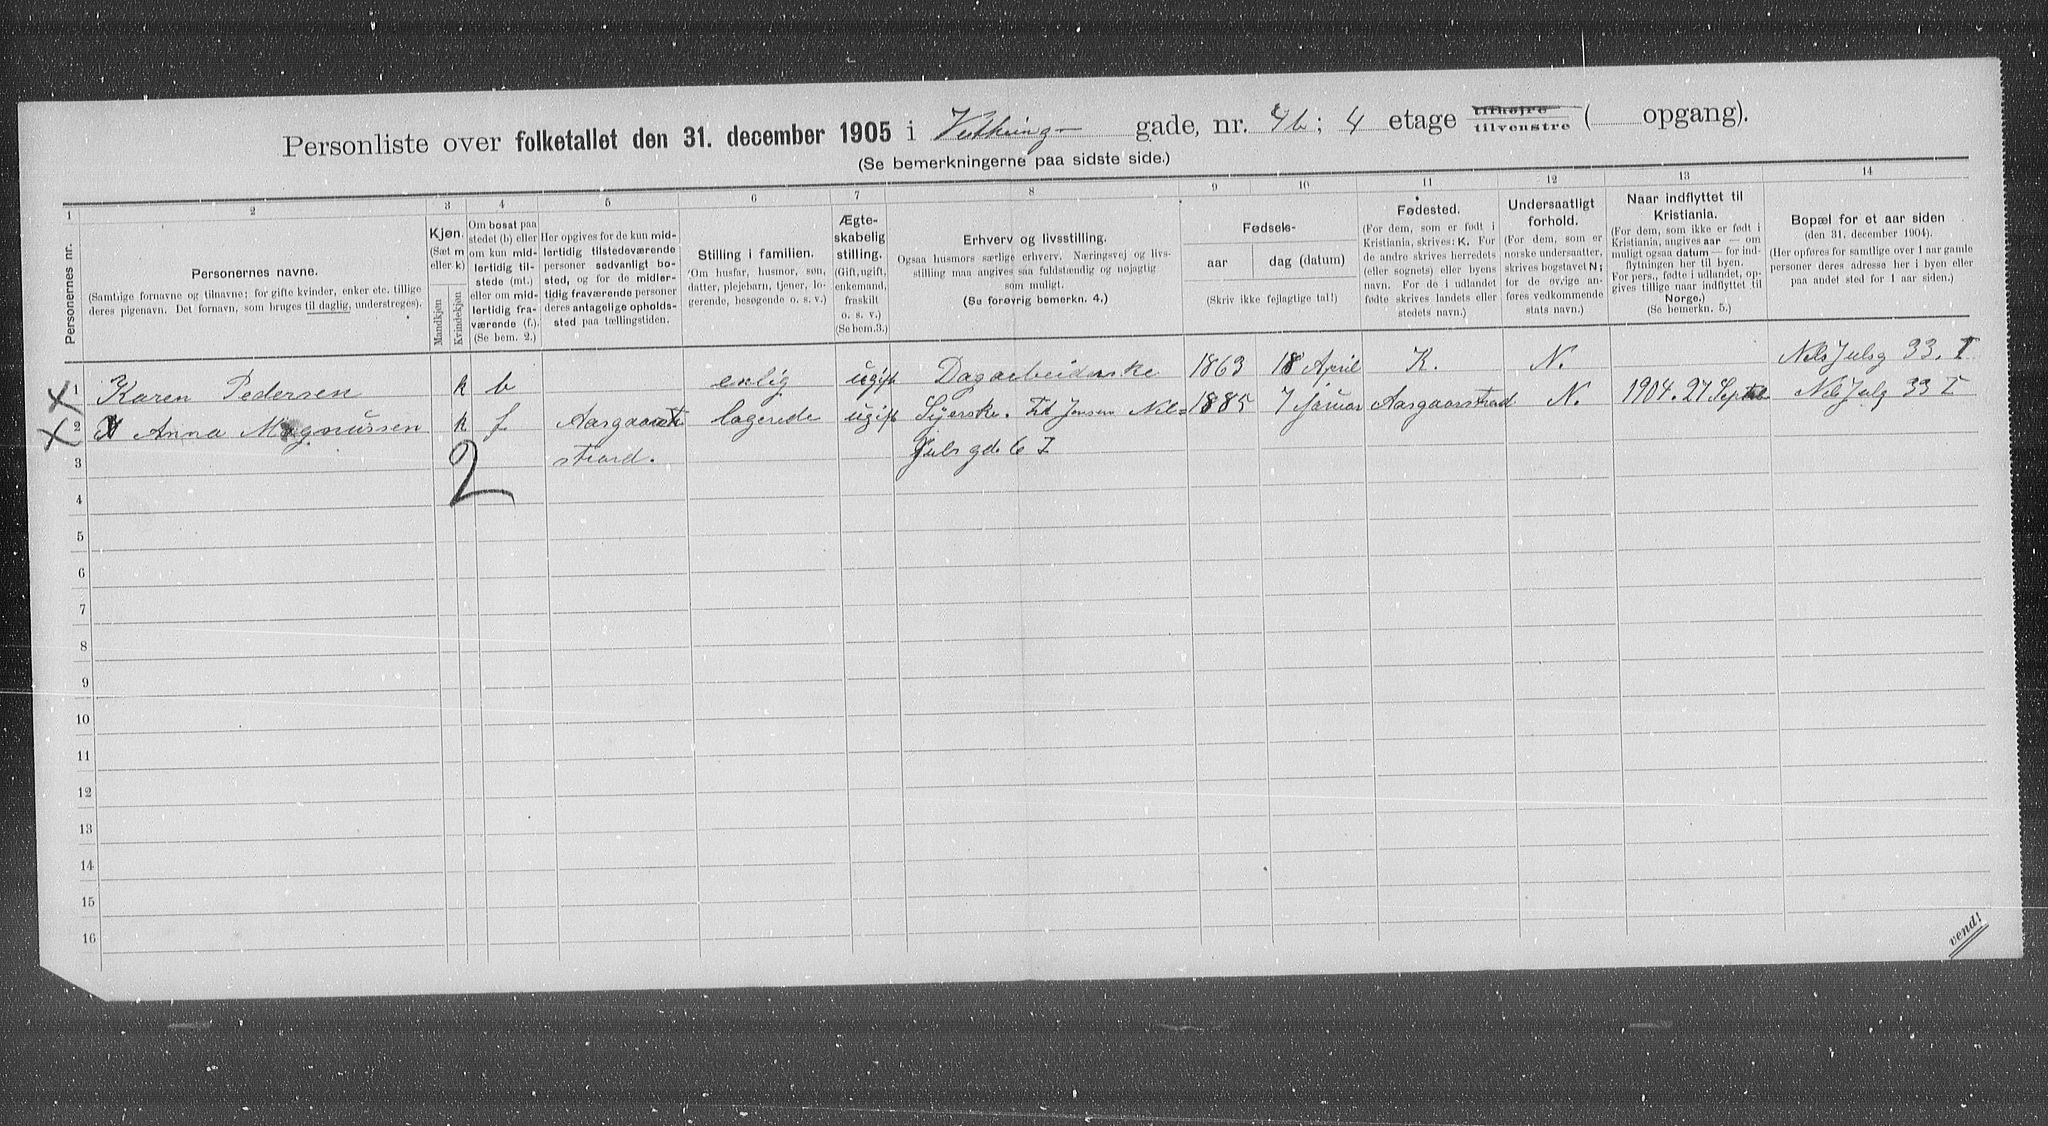 Personliste over folketallet den 31. december 1905 i Vikking- gade, nr. 4b; 4 etage tilhøjre tilvenstre ( opgang).
(Se bemerkningerne paa sidste side.)
1 2 3 4 5 6 7 8 9 10 11 12 13 14
Personernes nr.
Personernes navne.
(Samtlige fornavne og tilnavne; for gifte kvinder, enker etc. tillige
deres pigenavn. Det fornavn, som bruges til daglig, understreges).
Kjøn.
(Sæt m
eller k)
Mandkjøn
Kvindekjøn
Om bosat paa
stedet (b) eller
om kun mid-
lertidig til-
stede (mt.)
eller om mid-
lertidig fra-
værende (f.).
(Se bem. 2.)
Her opgives for de kun mid-
lertidig tilstedeværende
personer sedvanligt bo-
sted, og for de midler-
tidig fraværende personer
deres antagelige opholds-
sted paa tællingstiden.
Stilling i familien.
(Om husfar, husmor, søn,
datter, plejebarn, tjener, lo-
gerende, besøgende o. s. v.)
Ægte-
skabelig
stilling.
(Gift, ugift,
enkemand,
fraskilt
o. s. v.)
(Se bem. 3.)
Erhverv og livsstilling.
Ogsaa husmors særlige erhverv. Næringsvej og livs-
stilling maa angives saa fuldstændig og nøjagtig
som muligt.
(Se forøvrig bemerkn. 4.)
Fødsels-
aar
dag (datum)
(Skriv ikke fejlagtige tal!)
Fødested.
(For dem, som er født i
Kristiania, skrives: K. For
de andre skrives herredets
(eller sognets) eller byens
navn. For de i udlandet
fødte skrives landets eller
stedets navn.)
Undersaatligt
forhold.
(For dem, som er
norske undersaatter,
skrives bogstavet N;
for de øvrige an-
føres vedkommende
stats navn.)
Naar indflyttet til
Kristiania.
(For dem, som ikke er født i
Kristiania, angives aar — om
muligt ogsaa datum — for ind-
flytningen her til byen.
For pers., fødte i udlandet, op-
gives tillige naar indflyttet til
Norge.)
(Se bemerkn. 5.)
Bopæl for et aar siden
(den 31. december 1904).
(Her opføres for samtlige over 1 aar gamle
personer deres adresse her i byen eller
paa andet sted for 1 aar siden.)
1 Karen Pedersen k b enlig ugift Dagarbeiderske 1863 18 April K. N. Nels Julsg 33. I
2 Anna Magnussen k f Aasgaards logerede ugift Syerske. Fr. Jensen Nils 1885 7 Januar Aasgaarstrand N. 1904. 27 Septbr Nils Julg 33 I
3 2 strand. Juls gde 6 I
4
5
6
7
8
9
10
11
12
13
14
15
16
vend!